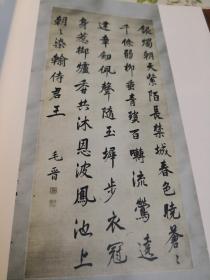 銀燭朝天紫陌長禁城春色曉蒼〻
千條弱柳垂青瑣百囀流鶯遶
建章劍佩聲隨玉墀步衣冠
身惹御爐香共沐恩波鳳池上
朝〻染翰侍君王
毛晉